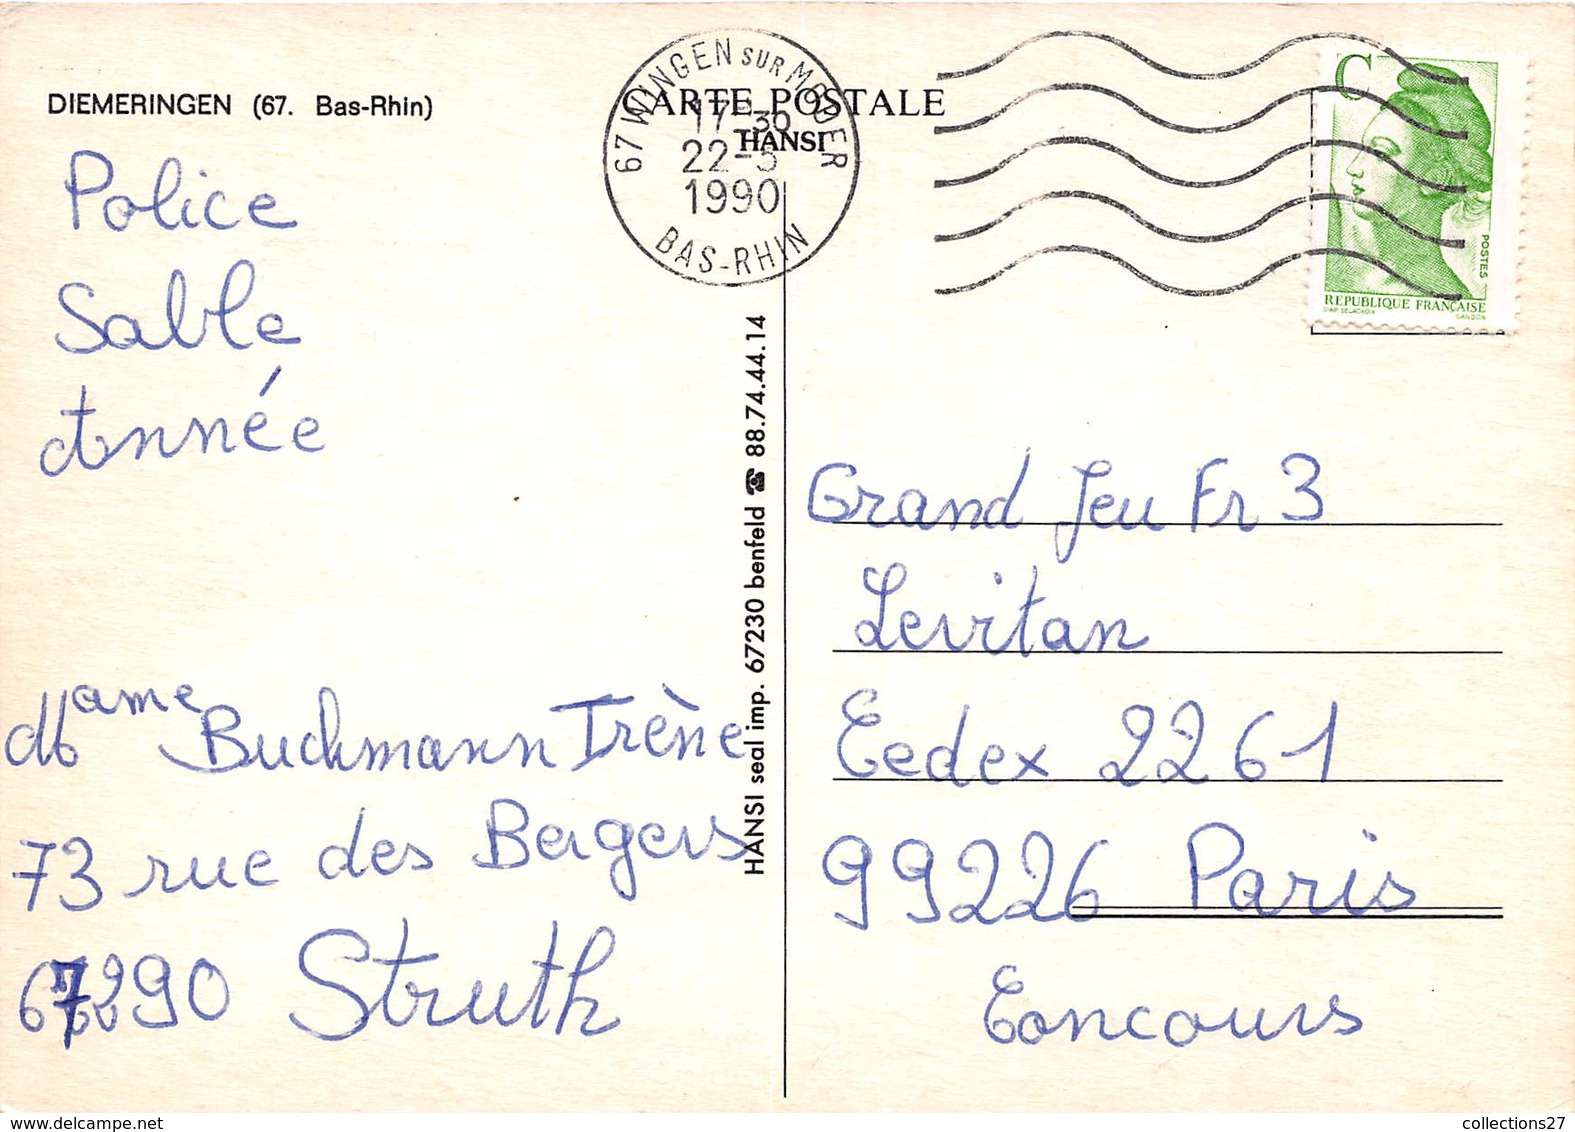 DIEMERINGEN (67. Bas-Rhin)
CARTE POSTALE
HANSI
67 WINGEN SUR MODER
17H30
22-5
1990
BAS-RHIN
C
POSTES
REPUBLIQUE FRANÇAISE
D'AP. DELACROIX GANDON
Police
Sable
Année
Mame Buchmann Irène
73 rue des Bergers
67290 Struth
HANSI seal imp. 67230 benfeld ☎ 88.74.44.14
Grand Jeu Fr 3
Levitan
Cedex 2261
99226 Paris
Concours
collections27